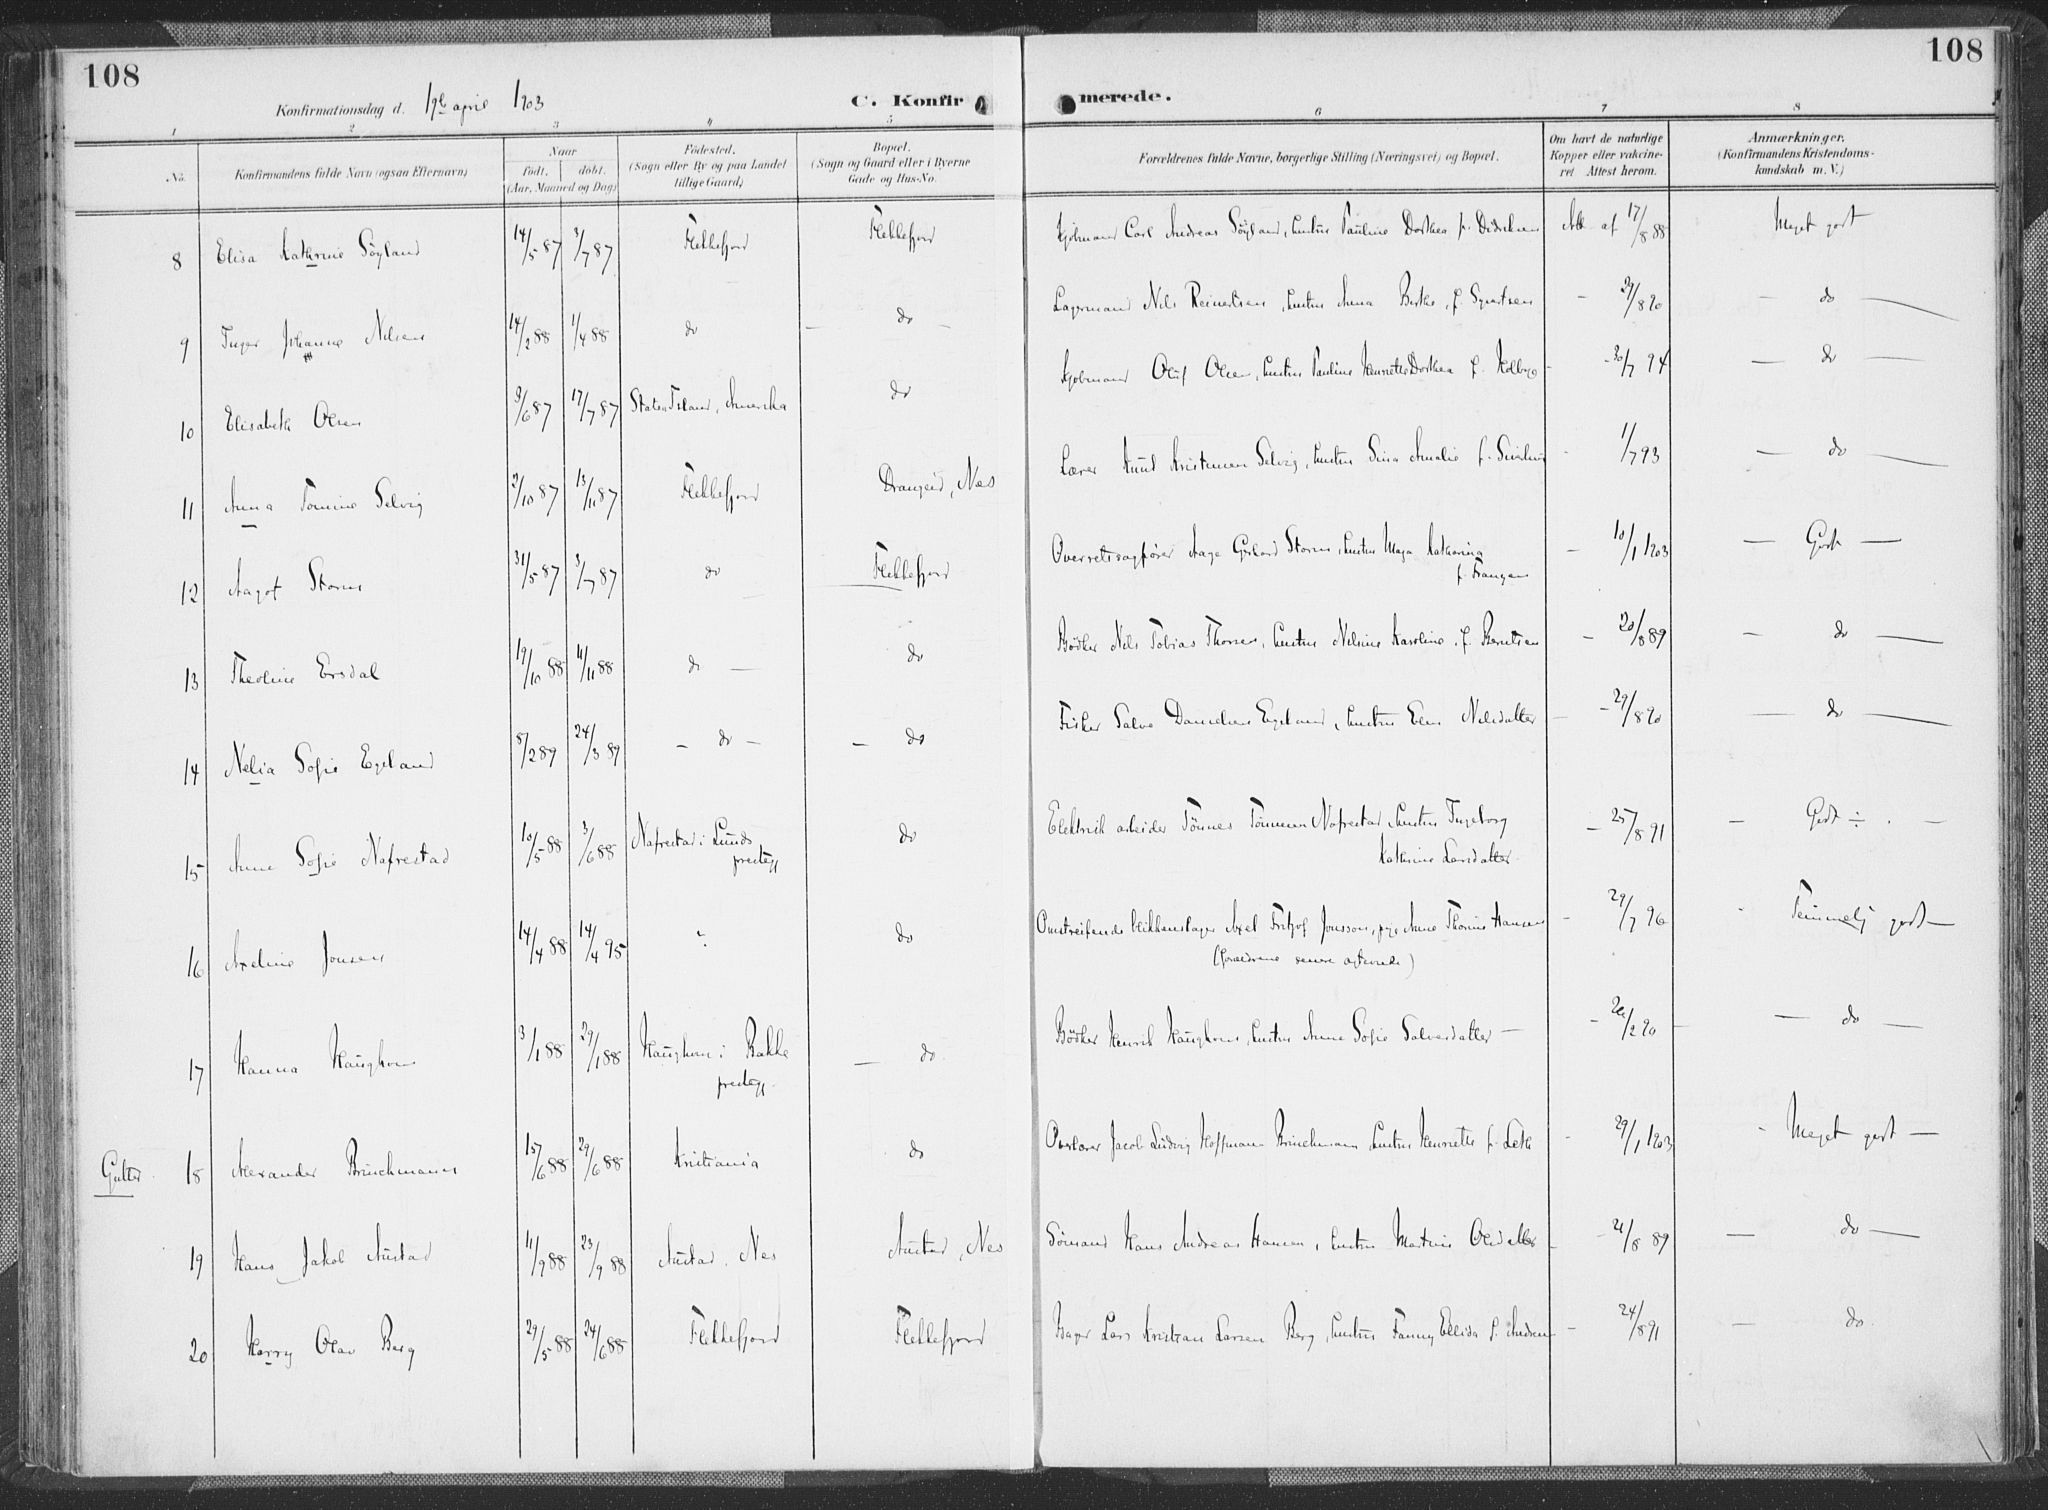 108
108
Konfirmationsdag d. 19de april 1903
C. Konfirmerede.
1 2 3 4 5 6 7 8
No.
Konfirmandens fulde Navn (ogsaa Efternavn)
Naar
født. døbt.
(Aar, Maaned og Dag)
Fødested.
(Sogn eller By og paa Landet
tillige Gaard)
Bopæl.
(Sogn og Gaard eller i Byerne
Gade og Hus-No.
Forældrenes fulde Navne, borgerlige Stilling (Næringsvei) og Bopæl.
Om havt de naturlige
Kopper eller vakcine-
ret Attest herom.
Anmærkninger.
(Konfirmandens Kristendoms-
kundskab m. V.)
8 Elisa Kathrine Söyland 14/5 87 3/7 87 Flekkefjord Flekkefjord Kjøbmand Carl Andreas Söyland, hustru Pauline Dorthea f. Didriksen Att. af 17/8 88 Meget godt
9 Inger Johanne Nilsen 14/2 88 1/4 88 do – do – Lagermand Nils Reinertsen, hustru Anna Berthe, f. – 29/8 90 – do –
10 Elisabeth Olsen 9/6 87 17/7 87 Staten Island, Amerika do Kjøbmand Oluf Olsen, hustru Pauline Henriette Dorthea f. – 30/7 94 – do –
11 Anna Tomine Selvig 2/10 87 13/11 87 Flekkefjord Drangeid, Nes Lærer Knud Kristensen Selvig, hustru Sina Amalie f. – 1/7 93 – do –
12 Aagot Storm 31/5 87 3/7 87 do Flekkefjord Overretssagfører Aage Storm, hustru Maja Katharina – 10/1 1903 – Godt –
f. Frangen
13 Theoline Ersdal 19/10 88 11/11 88 do – do Bödker Nils Tobias Thorsen, hustru Nilsine Karoline, f. Berntsen – 20/8 89 – do –
14 Nelia Sofie Egeland 8/2 89 24/3 89 – do – – do Fisker Salve Danielsen Egeland, hustru Elen Nilsdatter – 29/8 90 – do –
15 Anne Sofie Nafrestad 10/5 88 3/6 88 Nafrestad i Lunds do Elektrik arbeider Tönnes Tönnesen Nafrestad, hustru Ingeborg – 25/8 91 – Godt ÷ . –
prestegj.
Kathrine Larsdatter
16 Axeline Jonsen 14/4 88 14/4 95 do Omstreifende blikkenslager Axel Fritjof Jonsson, pige Anne Thorine Hansen – 29/7 96 Temmelig godt –
(forældrene senere ægteviede)
17 Hanna Haughom 3/1 88 29/1 88 Haughom i Bakke – do Bödker Henrik Haughom, hustru Anne Sofie Salvesdatter – – 26/2 90 – do –
prestegj.
Gutter. 18 Alexander Brinchmann 15/6 88 29/6 88 Kristiania do Overlærer Jacob Ludvig Hoffmann Brinchmann, hustru Henriette f. – 29/1 1903 – Meget godt –
19 Hans Jakob Austad 11/9 88 23/9 88 Austad, Nes Austad, Nes Sömand Hans Andreas Hansen, hustru Martine Olsdatter – 21/8 89 – do –
20 Harry Olav Berg 29/5 88 24/6 88 Flekkefjord Flekkefjord Bager Lars Kristian Larsen Berg, hustru Fanny Ellida f. – 24/8 91 – do